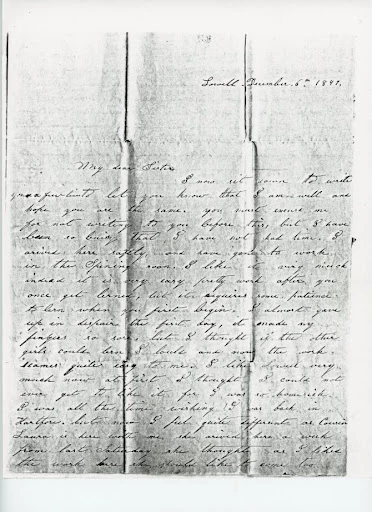 Lowell December 6th 184
My dear Sister
I now set down to write
you a few lines to let you know that I am well and
hope you are the same. you must excuse me
for not writing to you before this, but I have
been so busy that I have not had time. I
arived here safely and have gone to work
in the Spining room. I like it very much
indeed it is very easy pretty work after you
once get lerned, but it requires some patience
to lern when you first begin. I almost gave
up in despair the first day, it made my
fingers so sore but I thought if the other
girls could lern I could and now the work
seames quite easy to me. I like it well very
much now at first I thought I could not
ever get to like it for I was so homesick
I was all the time wishing I was back in
Hartford. but now I feel quite different as Cousin
Laura is here with me she arived here a week
from last Saturday she thought as I liked
the work here she should like to come too